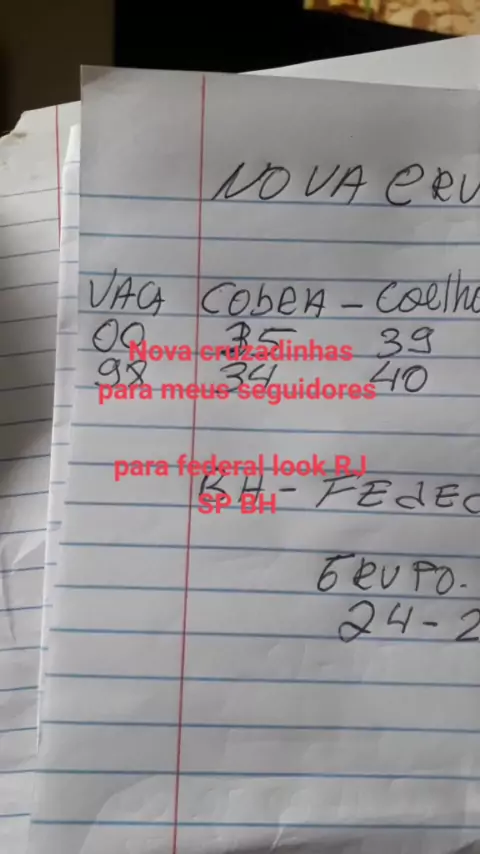 NOVA CRU
VACA CObRA - Coelho
00 35 39
98 34 40
Nova cruzadinhas
para meus seguidores
para federal look RJ
SP BH
BH - FEdEC
GRUPO.
24 - 2